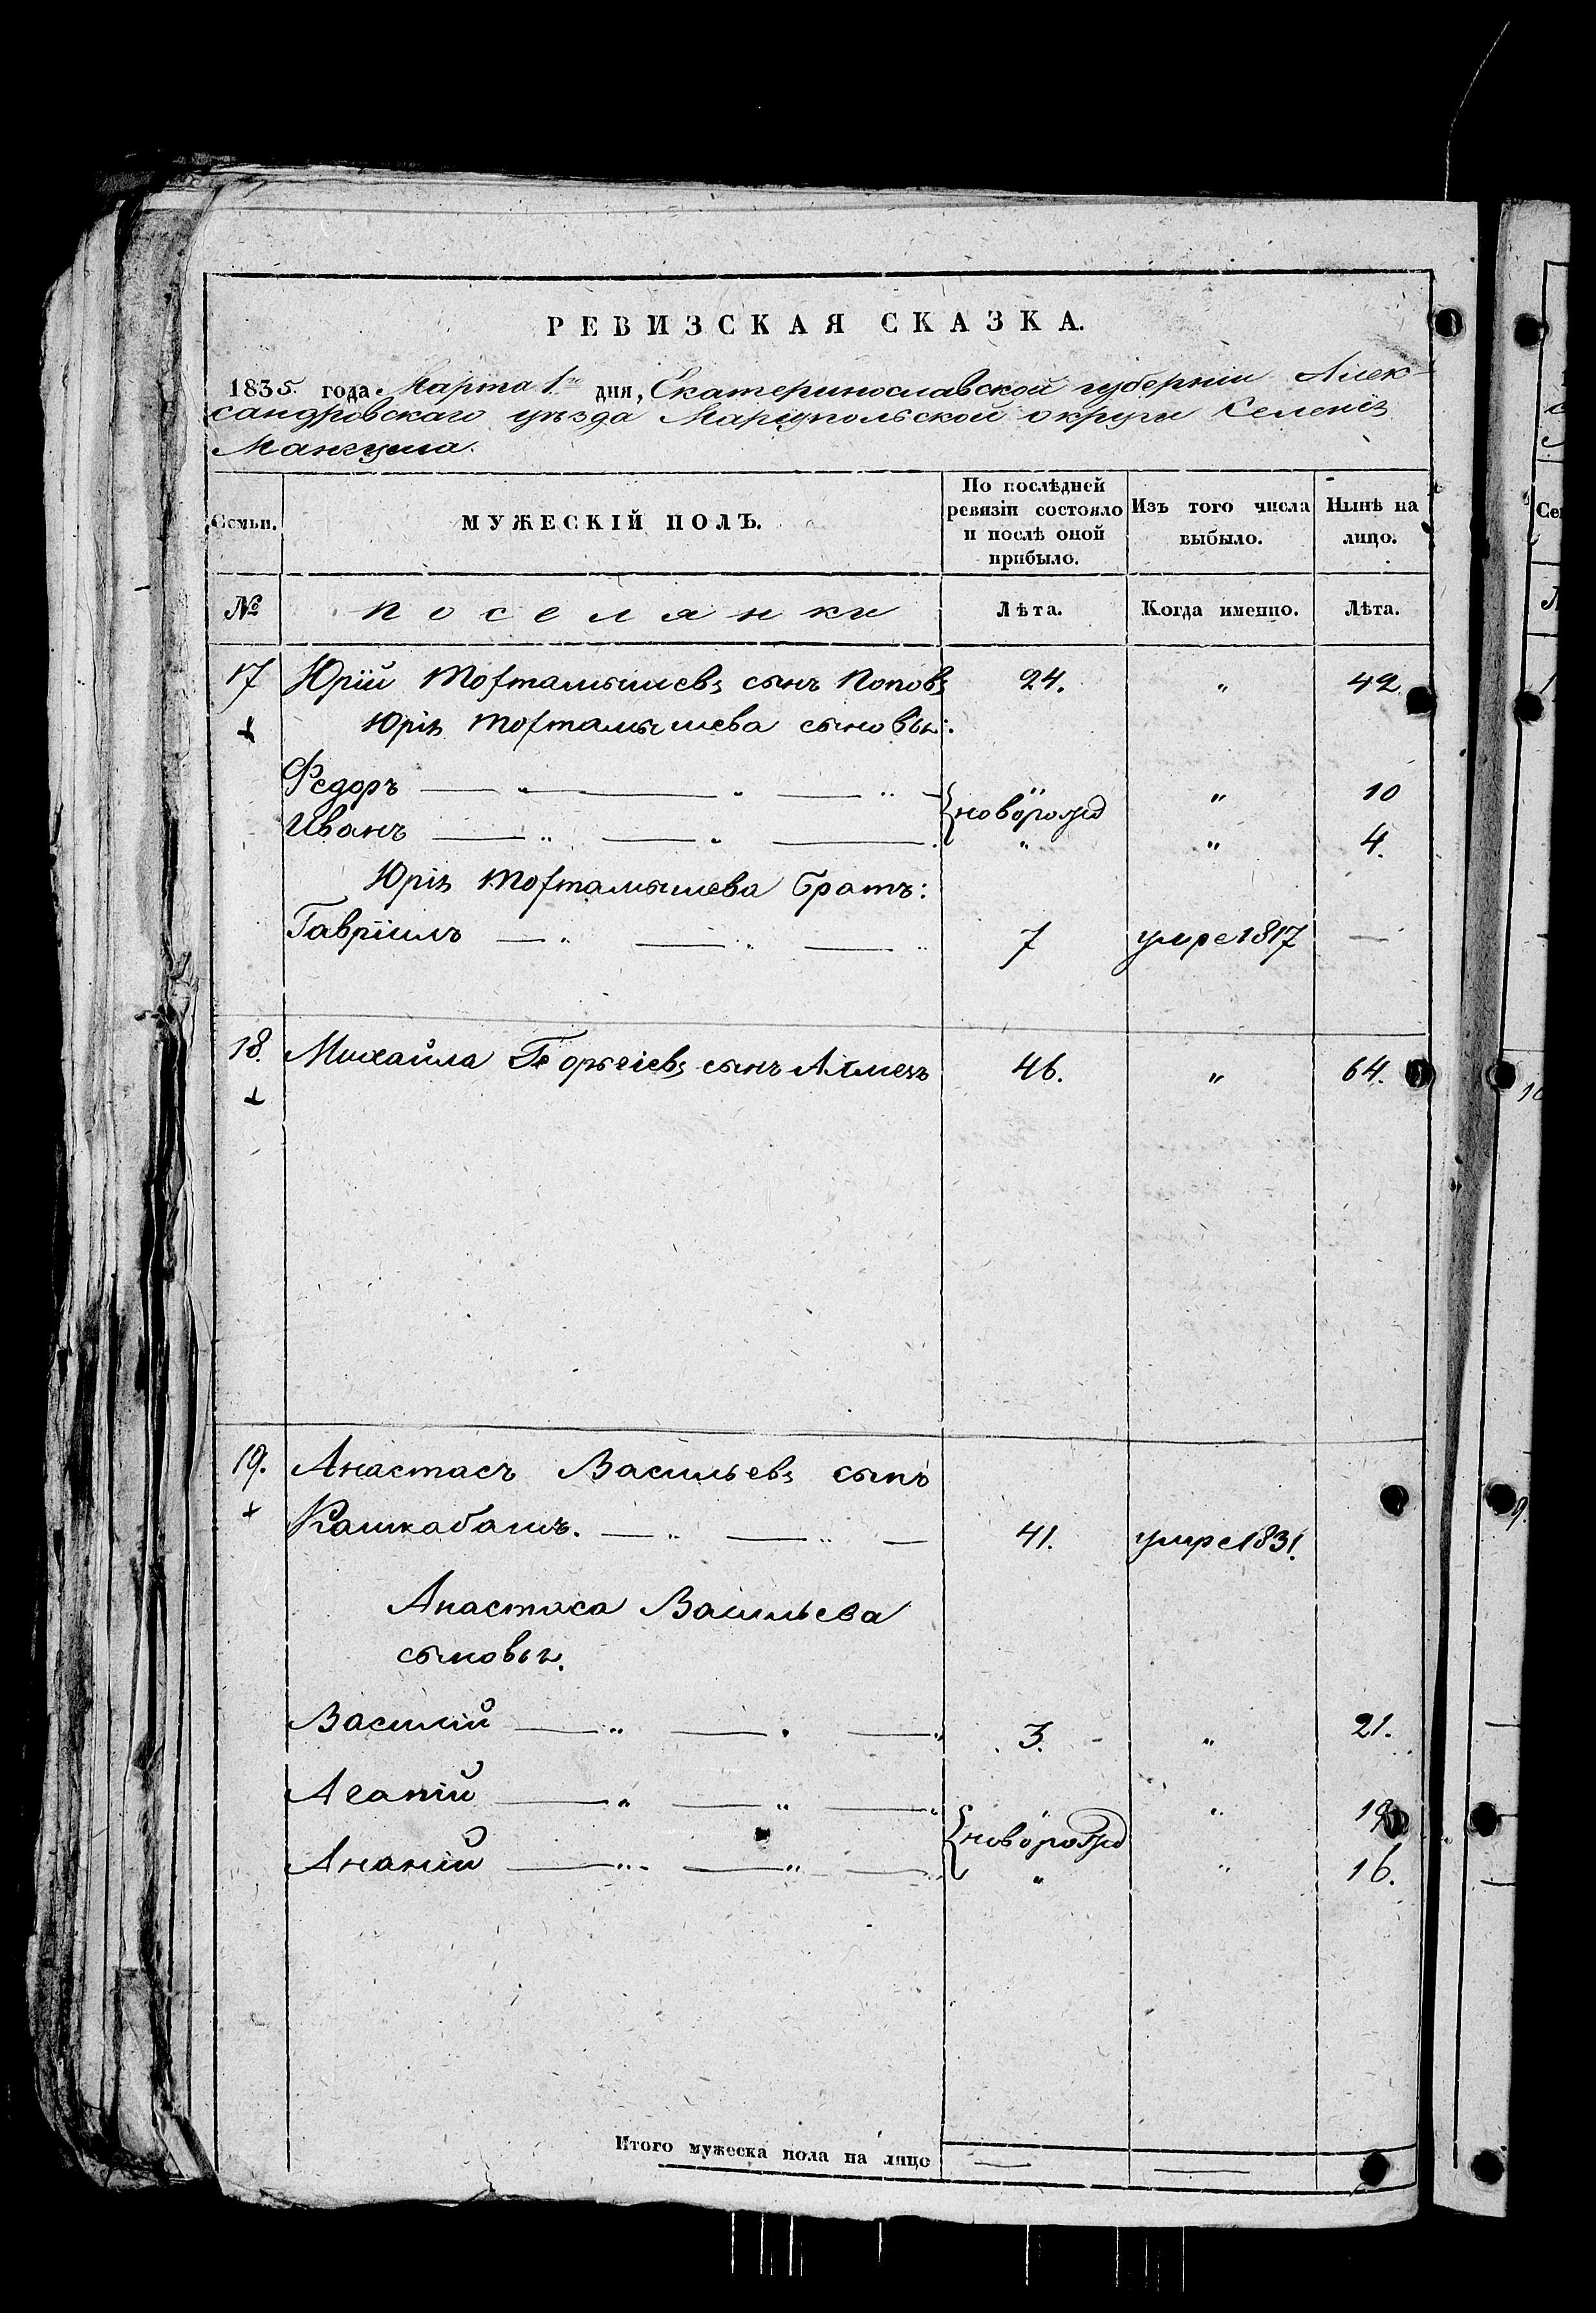 РЕВИЗСКАЯ СКАЗКА.
1835. года Марта 1го дня, Екатеринославской губерніи Алек-
сандровскаго уѣзда Маріупольской округи Селенія
Мангуша.
Семьи.
МУЖЕСКІЙ ПОЛЪ.
По послѣдней ревизіи состояло и послѣ оной прибыло.
Изъ того числа выбыло.
Нынѣ на лицо.
№ поселянки Лѣта. Когда именно. Лѣта.
17 Юрій Тохтамышевъ сынъ Поповъ 24. " 42
Юрія Тохтамышева сыновьи:
Федоръ — " — " — " — новорожд " 10
Иванъ — " — " — " " 4.
Юрія Тохтамышева братъ:
Гавріилъ — " — " — " 7 умре 1817 —
18. Михайла Георгіевъ сынъ 46. " 64.
19. Анастасъ Васильевъ сынъ
Кашкабашъ. — " — " — 41. умре 1831.
Анастаса Васильева
сыновьи.
Василій — " — " — " 3. " 21.
Агапій — " — " — " новорожд " 19
Ананій — " — " — " " 16.
Итого мужеска пола на лицо — —